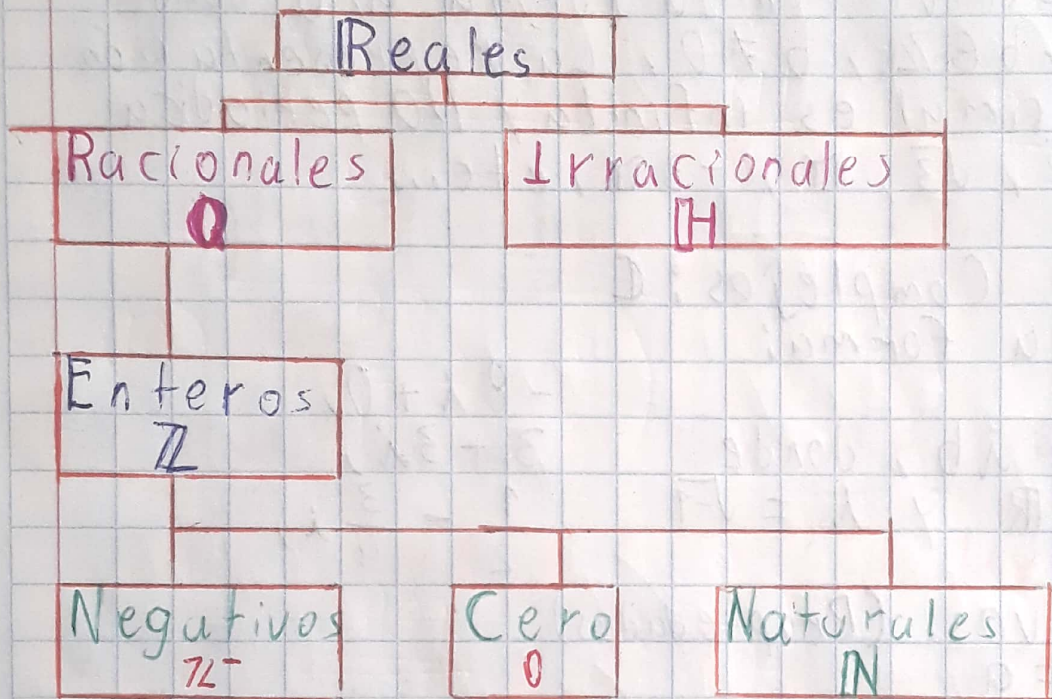 Reales
Racionales
Q
Irracionales
H
Enteros
Z
Negativos
Z⁻
Cero
0
Naturales
N